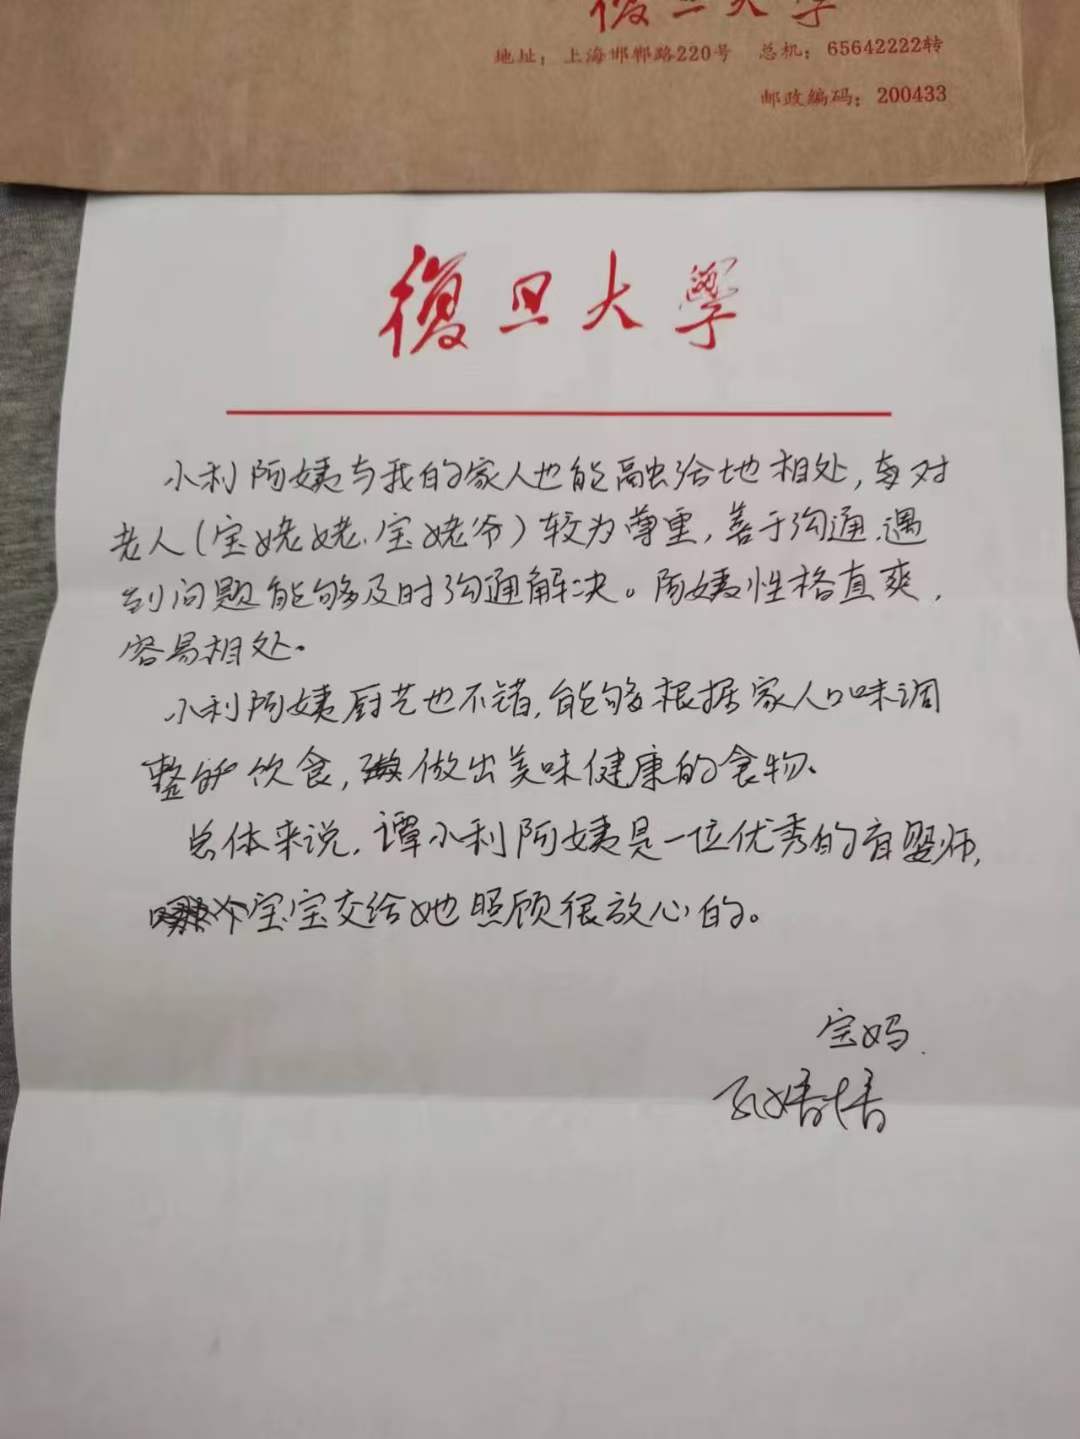 復旦大學
地址：上海邯郸路220号 总机：65642222转
邮政编码：200433
復旦大學
小利阿姨与我的家人也能融洽地相处，每对
老人（宝姥姥、宝姥爷）较为尊重，善于沟通，遇
到问题能够及时沟通解决。阿姨性格直爽，
容易相处。
小利阿姨厨艺也不错，能够根据家人口味调
整 饮食，做出美味健康的食物。
总体来说，谭小利阿姨是一位优秀的育婴师，
个宝宝交给她照顾很放心的。
宝妈